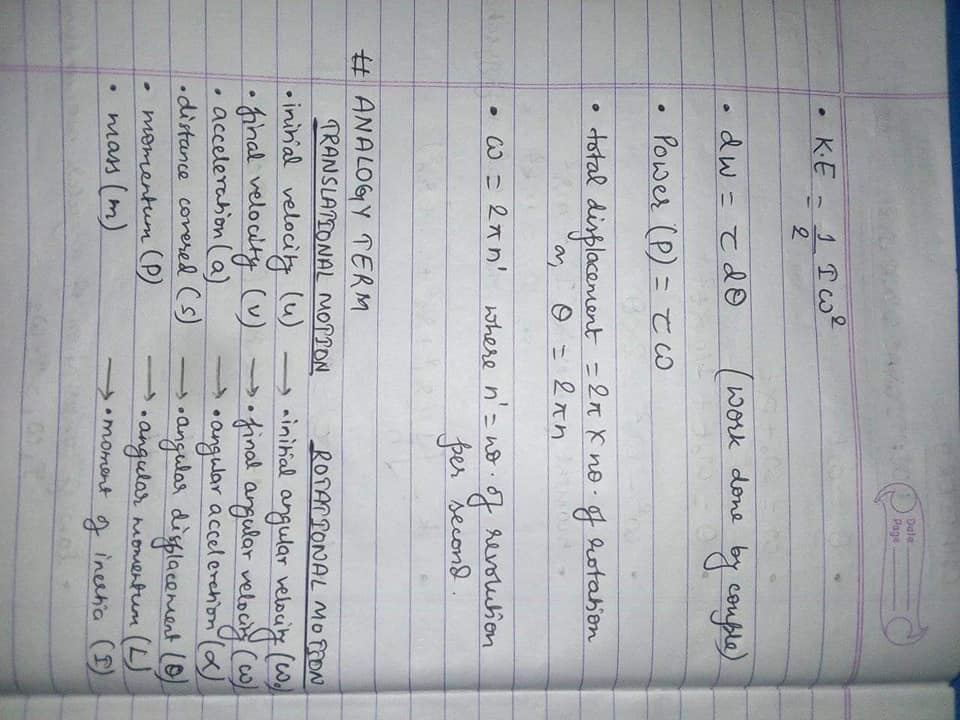 Date
Page
• K.E = 1/2 I ω²
• dW = τ dθ (work done by couple)
• Power (P) = τ ω
• total displacement = 2π x no. of rotation
θ = 2πn
• ω = 2πn' where n' = no. of revolution
per second.
# ANALOGY TERM
TRANSLATIONAL MOTION ROTATIONAL MOTION
• initial velocity (u) → • initial angular velocity (ω₀)
• final velocity (v) → • final angular velocity (ω)
• acceleration (a) → • angular acceleration (α)
• distance covered (s) → • angular displacement (θ)
• momentum (P) → • angular momentum (L)
• mass (m) → • moment of inertia (I)